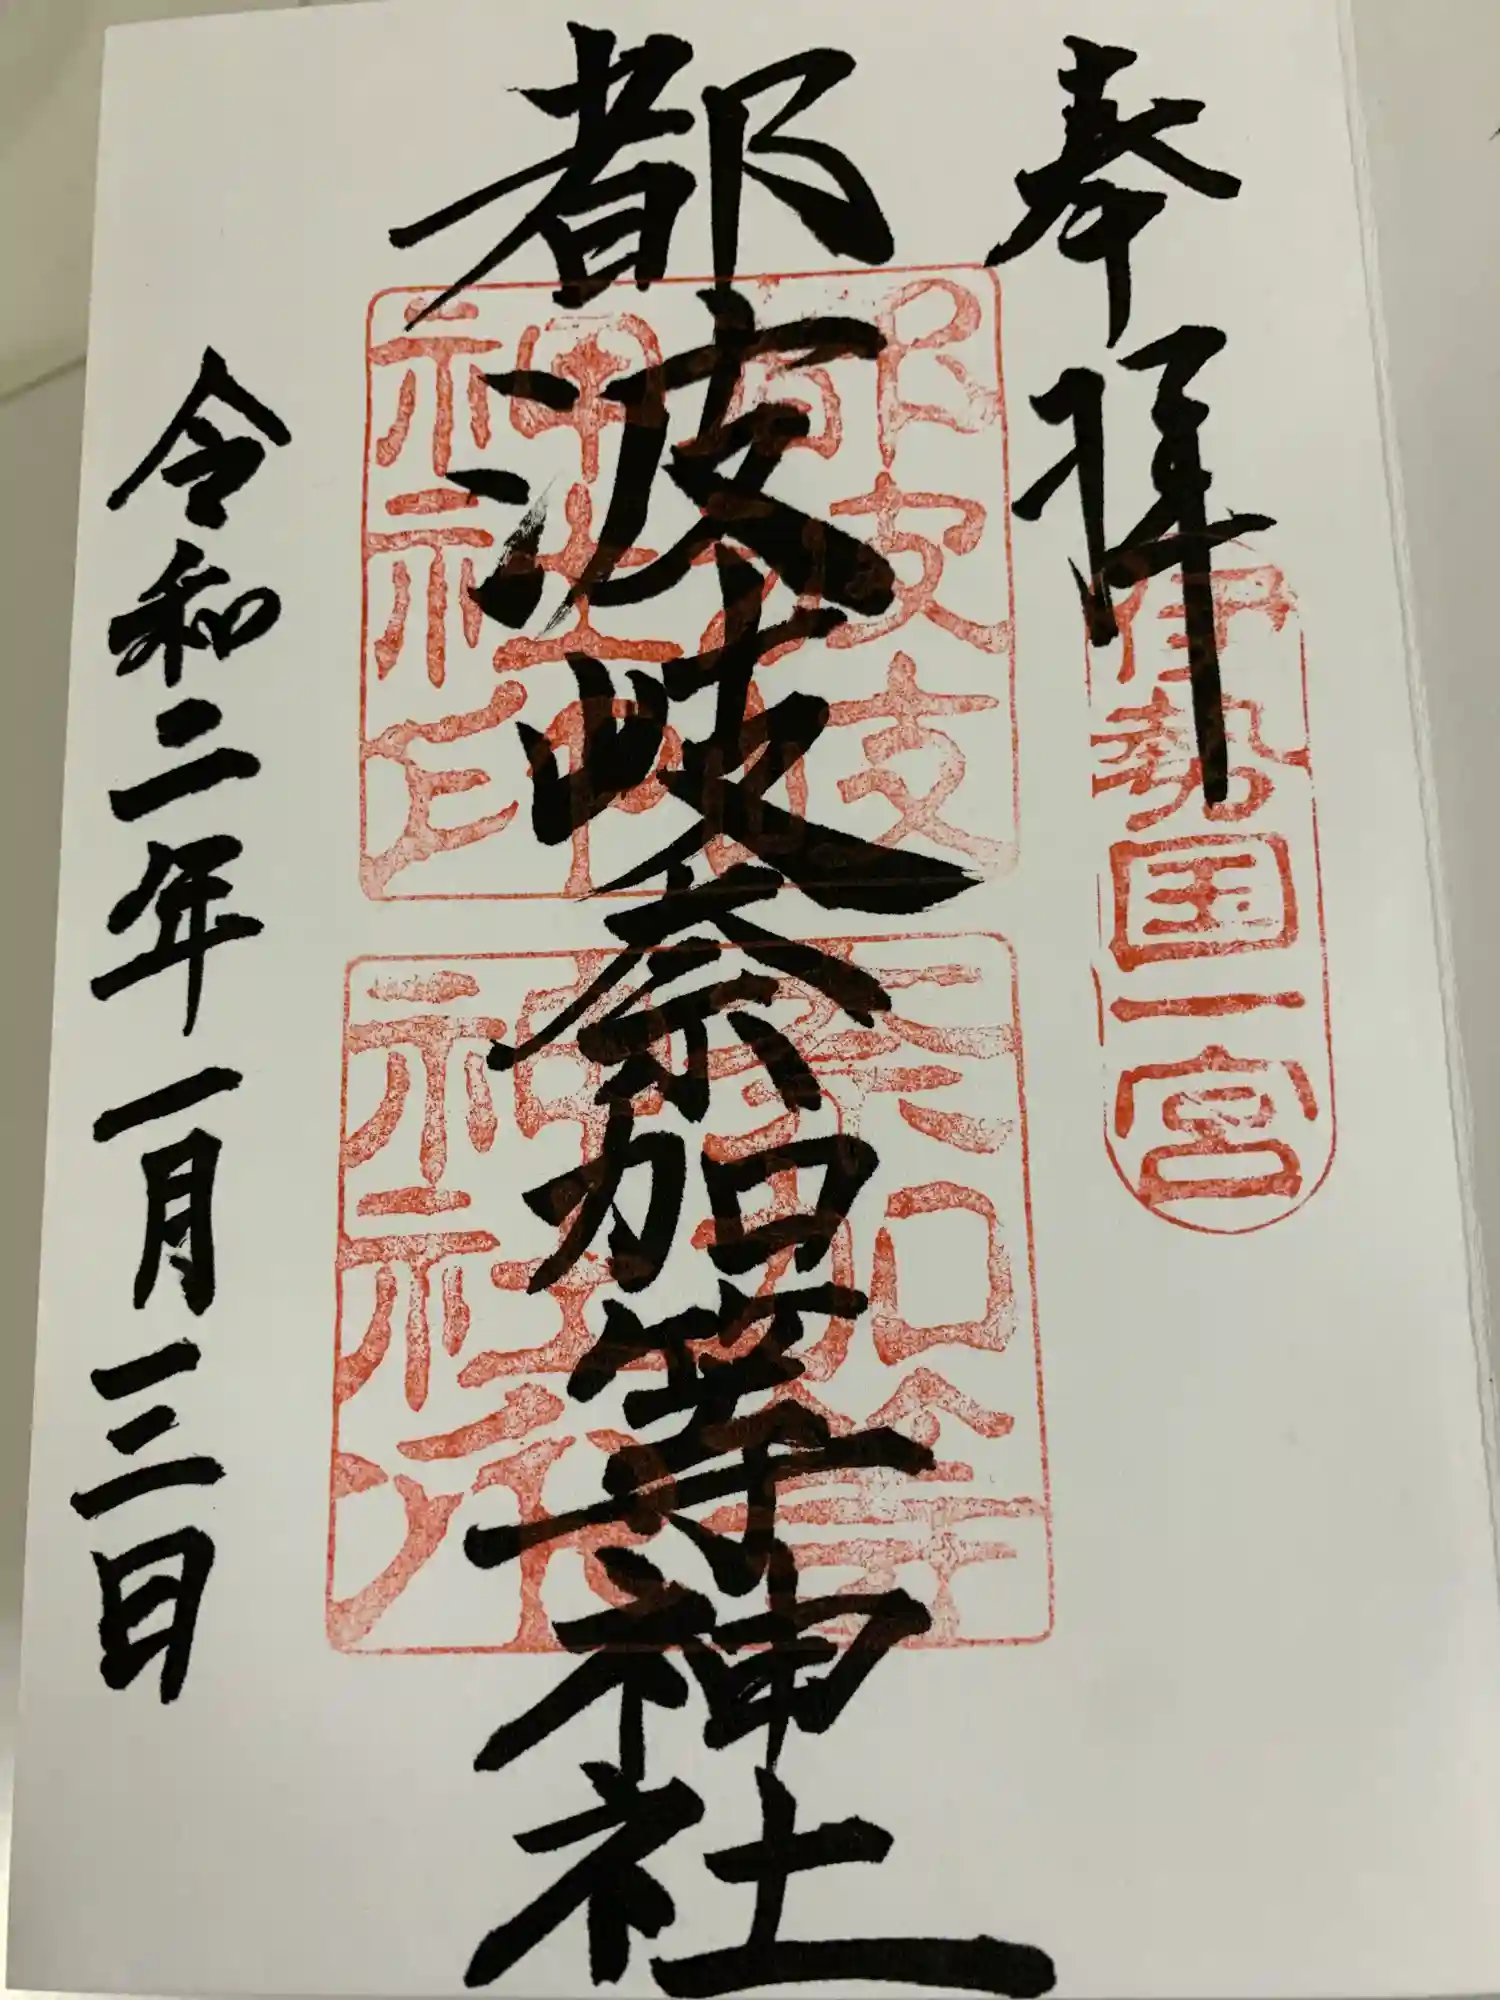 奉拝
伊勢国一宮
都波岐奈加等神社
都波岐
神社印
奈加等
神社
令和二年一月三日